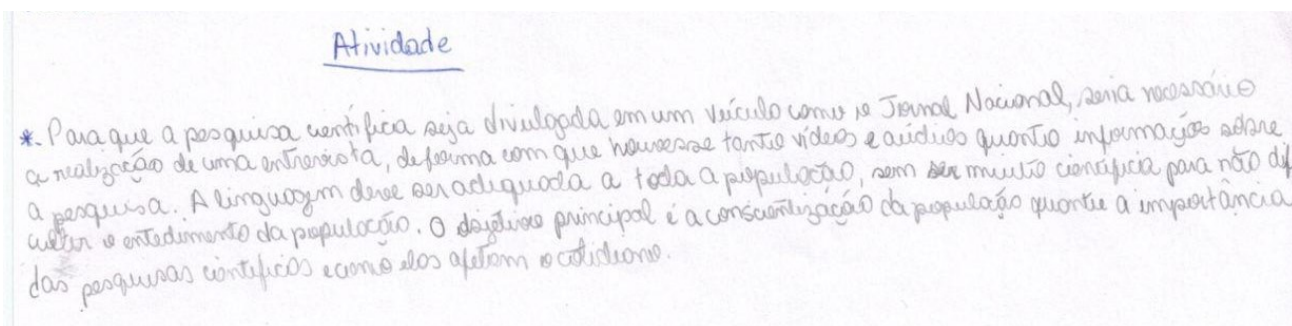 Atividade
*. Para que a pesquisa científica seja divulgada em um veículo como o Jornal Nacional, seria necessário
a realização de uma entrevista, de forma com que houvesse tanto vídeos e aúdios quanto informações sobre
a pesquisa. A linguagem deve ser adequada a toda a população, sem ser muito científica para não difi
cultar o entedimento da população. O objetivo principal é a conscientização da população quanto a importância
das pesquisas científicas e como elas afetam o cotidiano.